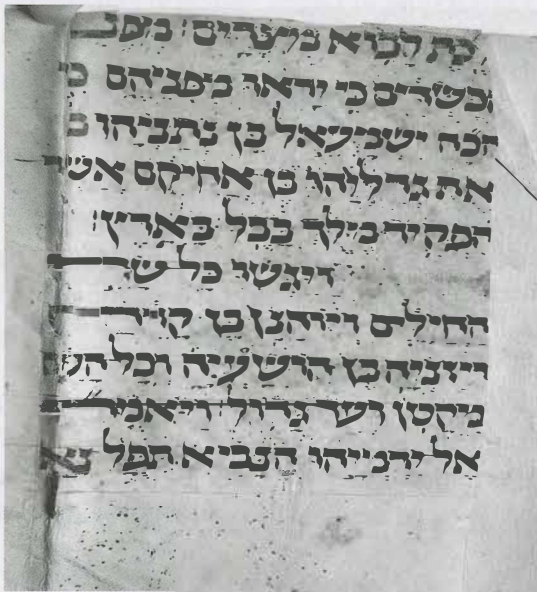 כת לבוא מצרים מפני
הכשדים כי יראו מפניהם כי
הכה ישמעאל בן נתניהו
את גדליהו בן אחיקם אשר
הפקיד מלך בבל בארץ׃
ויגשו כל שרי
החילים ויוחנן בן קרח
ויזניה בן הושעיה וכל העם
מקטן ועד גדול ויאמרו
אל ירמיהו הנביא תפל נא